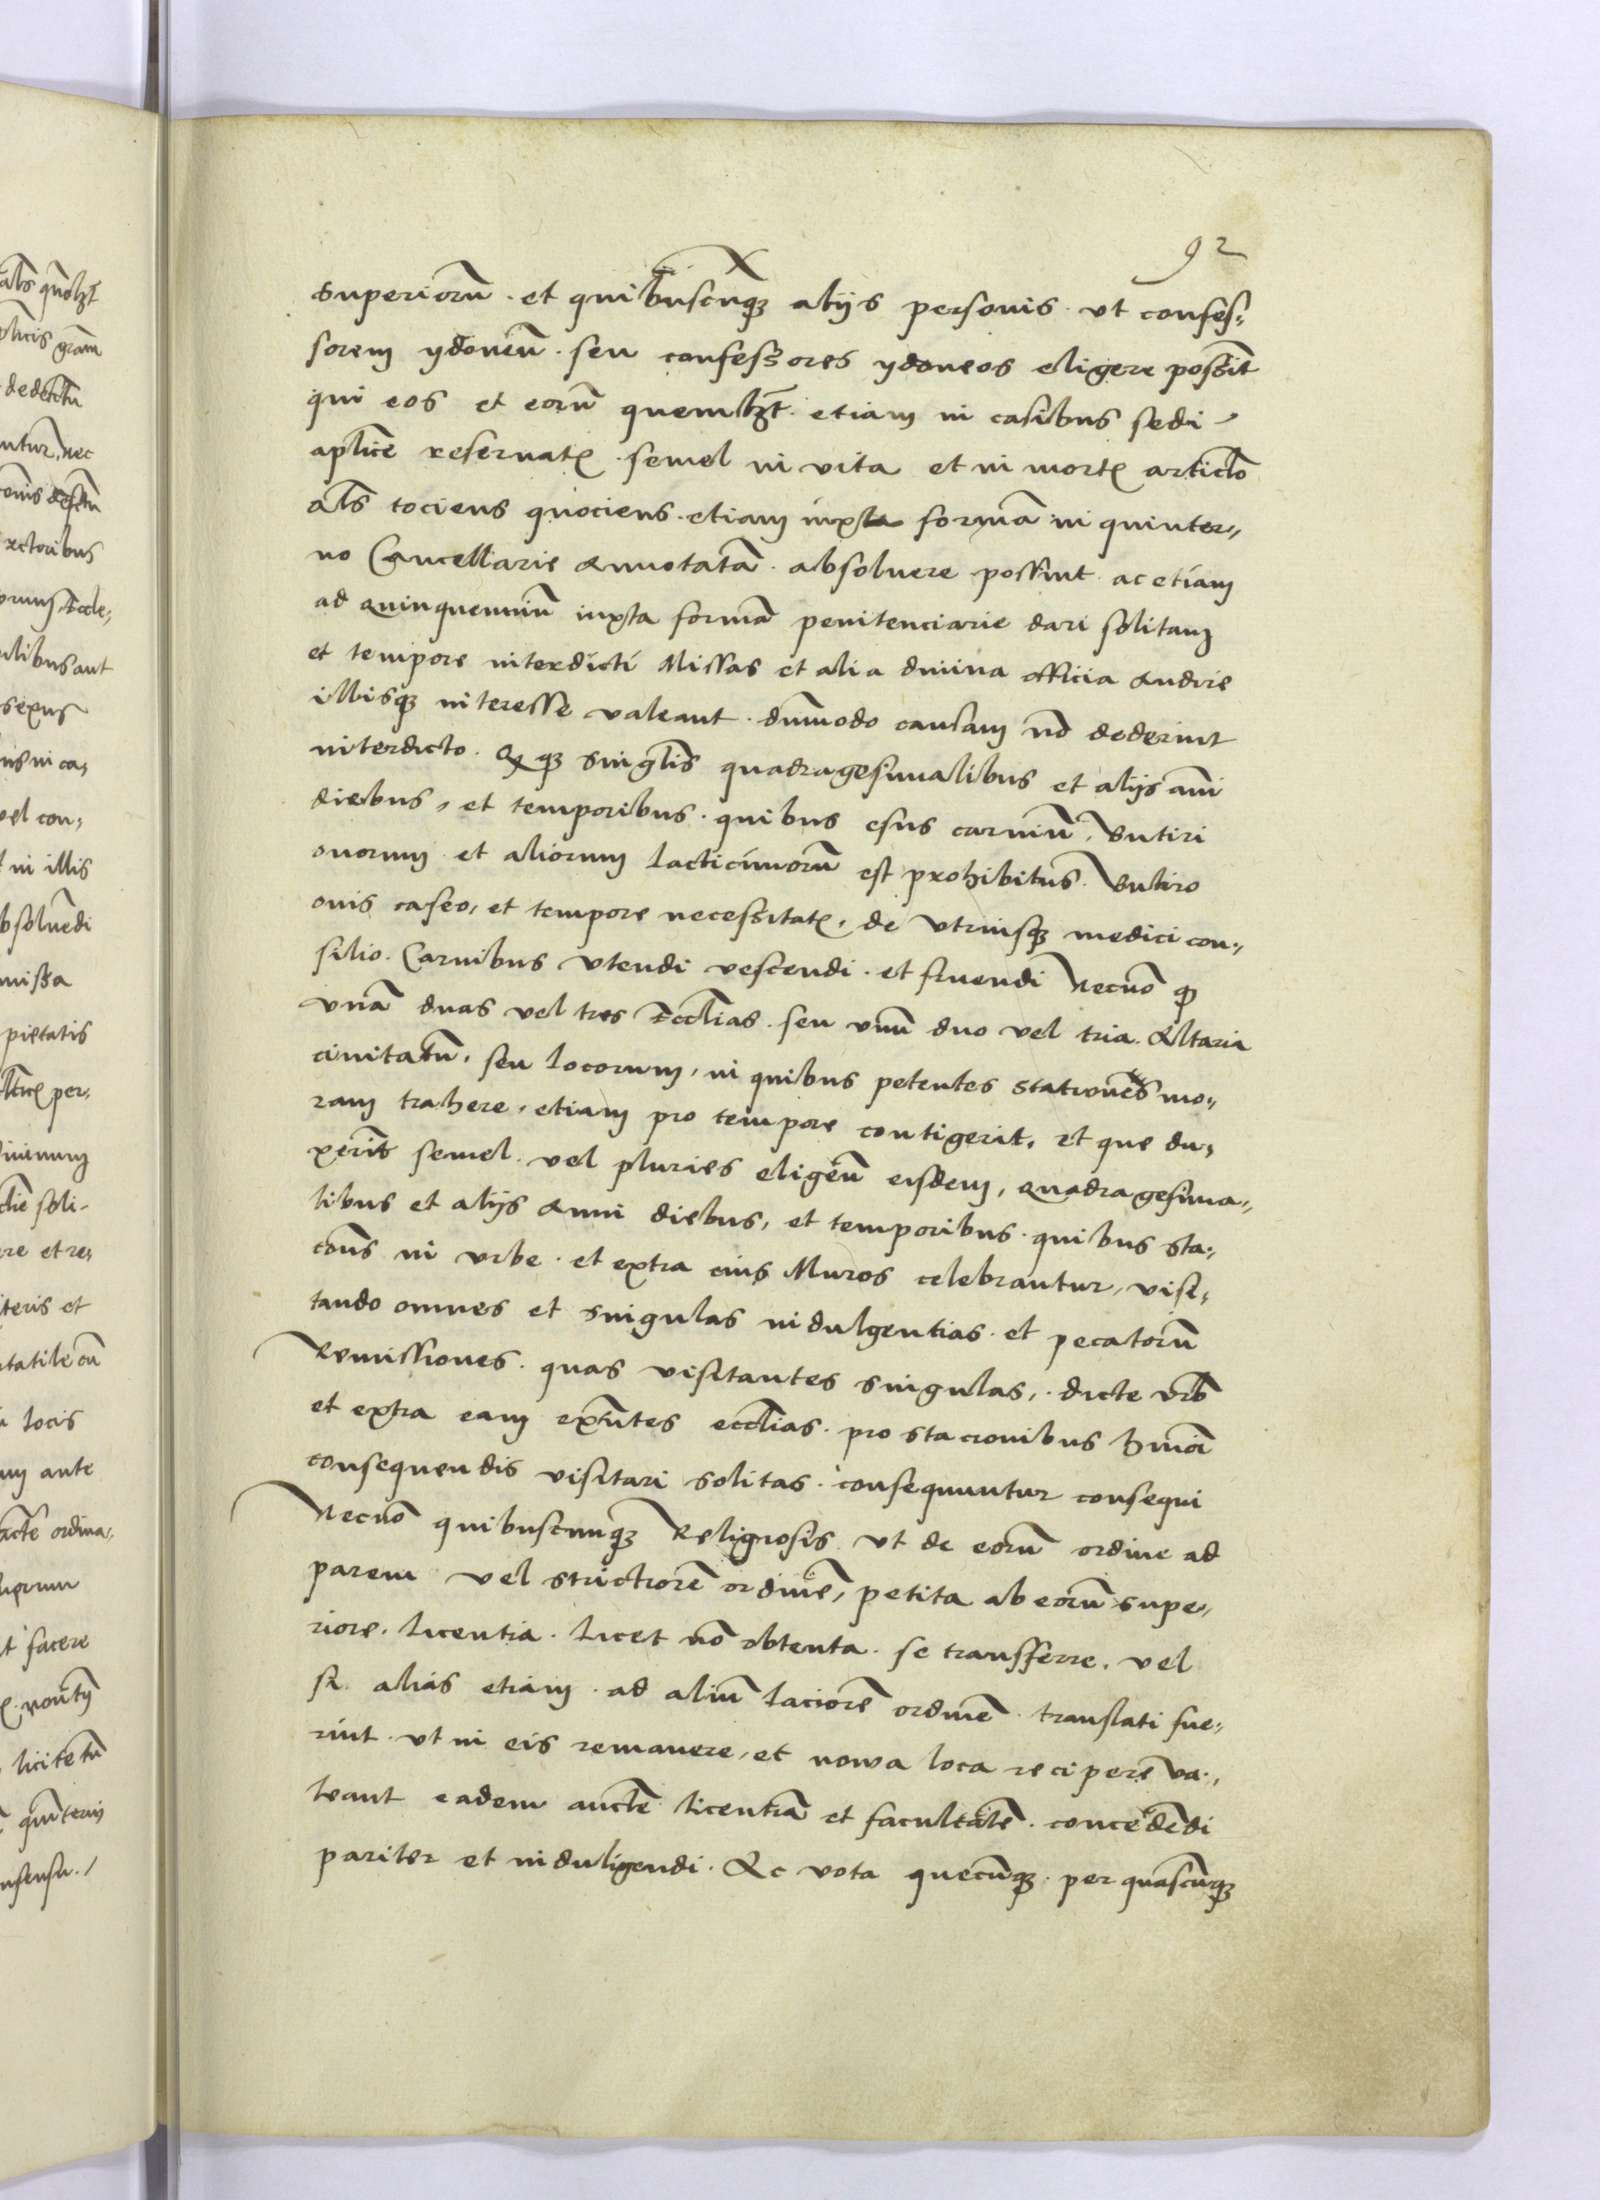 92
Superiorū · et quibuscūqꝫ alijs personis · vt confes¬
sorem ydoneū · seu confessores ydoneos eligere possīt
qui eos et eorū quemlꝫt · etiam in casibus sedi
aplice reseruatꝭ · semel in vita et in mortꝭ articlo
als tociens quociens · etiam iuxta formā in quinter¬
no Cancellarie annotatā · absoluere possint · ac etiam
ad quinquenniū iuxta formā penitenciarie dari solitam
et tempore interdicti Missas et alia diuina officia audire
illisqꝫ interesse valeant · dūmodo causam nō dederint
interdicto · qꝫ singlis quadragesimalibus et alijs anni
diebus, et temporibus · quibus esus carniū, butiri
ouorum et aliorum lacticiniorū est prohibitus · butiro
ouis caseo, et tempore necessitatꝭ, de vtriusqꝫ medici con¬
silio · Carnibus vtendi vescendi · et fruendi Necnō qꝫ
vnā duas vel tres Ecclias · seu vnū duo vel tria · Altaria
ciuitatū, seu locorum, in quibus petentes stationes mo¬
ram trahere, etiam pro tempore contigerit, et que du¬
xerīt semel · vel pluries eligēn eisdem, quadragesima¬
libus et alijs anni diebus, et temporibus · quibus sta¬
cōns in vrbe · et extra eius Muros celebrantur, visi¬
tando omnes et singulas indulgentias · et pecatorū
Remissiones · quas visitantes singulas, · dicte vrb
et extra eam exntes ecclias · pro stacionibus hmōi
consequendis visitari solitas · consequuntur consequi
Necnō quibuscunqꝫ Religiosis vt de eorū ordine ad
parem vel strictiorē ordinē, petita ab eorū supe¬
riore · licentia · licet nō obtenta · se transferre, vel
si alias etiam · ad aliū laciorē ordinē · translati fue¬
rint · vt in eis remanere, et nowa loca recipere va¬
leant eadem aucte licentiā et facultatē · concedēdi
pariter et indulgendi · Ac vota quecūqꝫ · per quascūqꝫ